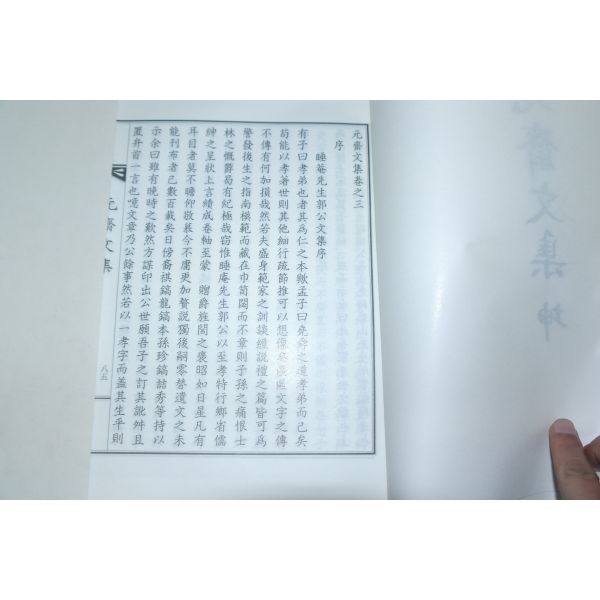 元齋文集卷之三
序
睡菴先生郭公文集序
有子曰孝弟也者其為仁之本歟孟子曰堯舜之道孝弟而已矣
苟能以孝著世則其他細行疏節推可以想像矣區區文字之傳
不傳有何加損哉然若夫盛身範家之訓談經說禮之篇皆可為
警發後生之指南模範而藏在巾笥閟而不章則子孫之痛恨士
林之慨鬱曷有紀極哉窃惟睡庵先生郭公以至孝特行鄉省儒
紳之呈狀上言績成卷軸至蒙 贈爵旌閭之褒昭如日星凡有
耳目者莫不瞻仰敬慕今不庸更加贅說獨後嗣零替遺文之未
能刊布者已數百載矣日傍裔祺鎬龍鎬本孫珍鎬喆秀等持以
示余曰雖有晚時之歎然方謀印出公世願吾子之訂其訛舛且
置弁首一言也噫文章乃公餘事然若以一孝字而蓋其生平則
元齋文集
八五
元齋文集 坤